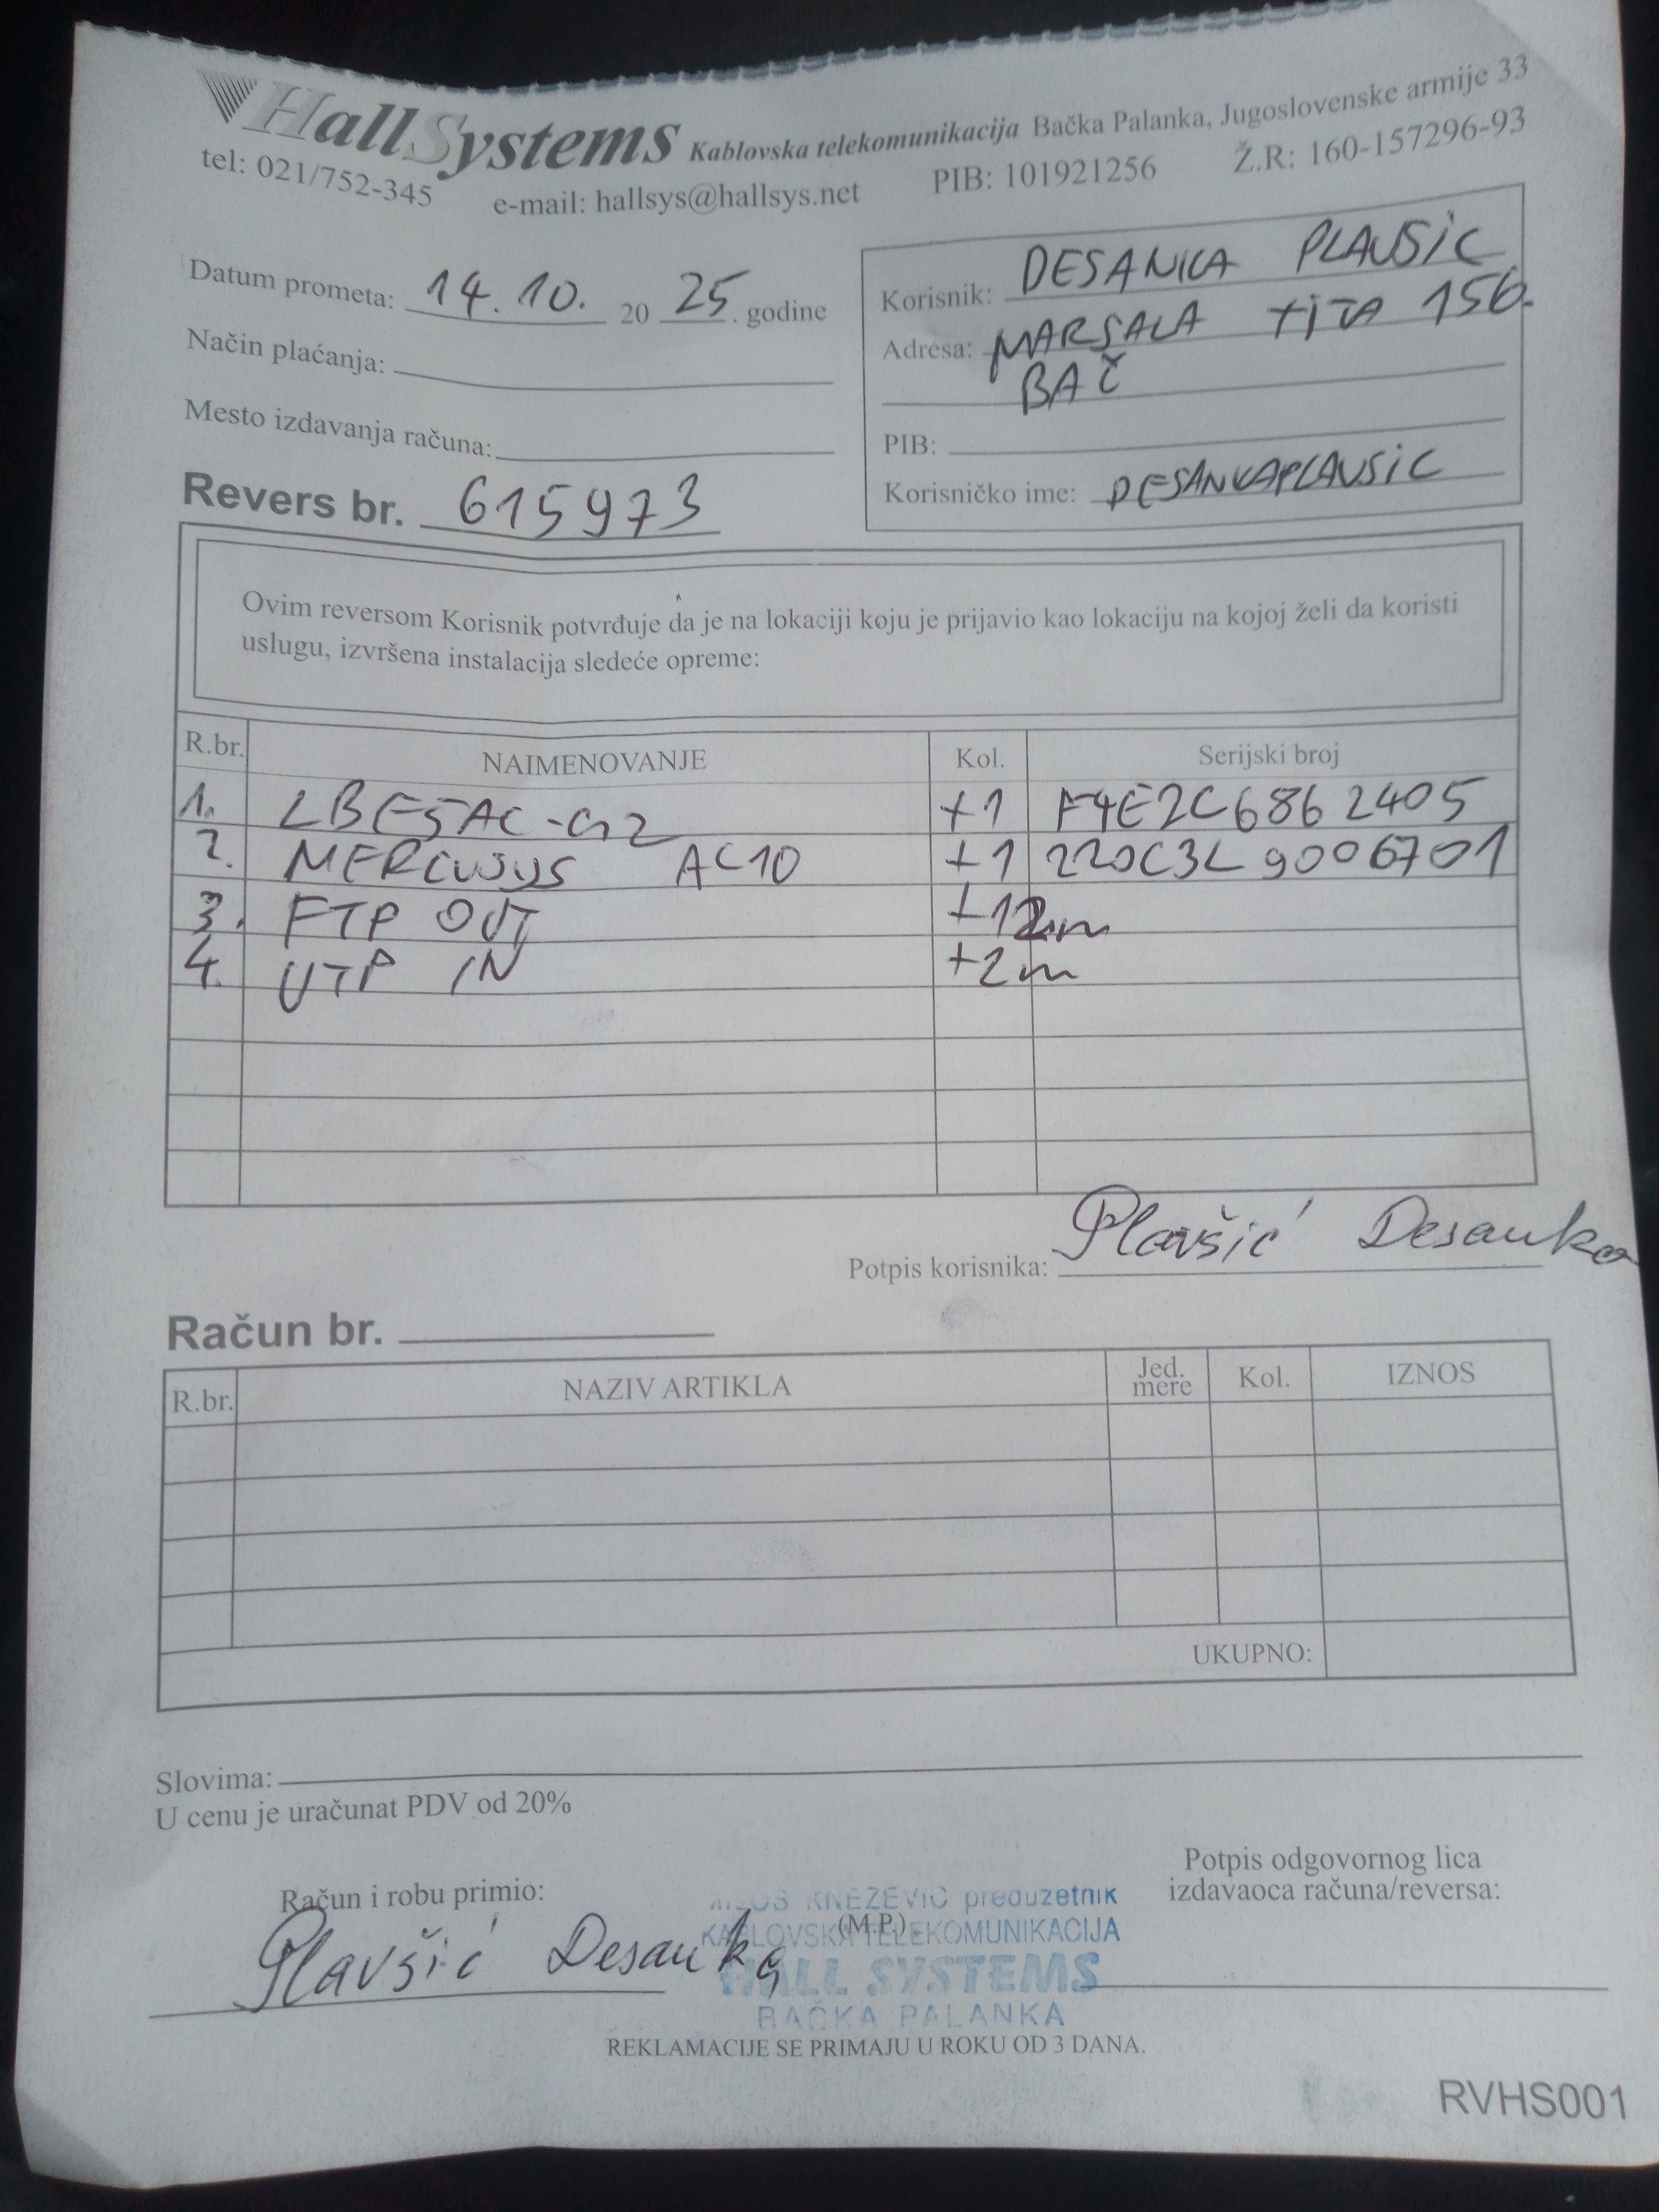 HallSystems Kablovska telekomunikacija Bačka Palanka, Jugoslovenske armije 33
tel: 021/752-345 e-mail: hallsys@hallsys.net PIB: 101921256 Ž.R: 160-157296-93
Datum prometa: 14.10. 20 25. godine
Način plaćanja:
Mesto izdavanja računa:
Revers br. 615973
Korisnik: DESANKA PLAVSIC
Adresa: MARSALA TITA 156.
BAČ
PIB:
Korisničko ime: DESANKAPLAVSIC
Ovim reversom Korisnik potvrđuje da je na lokaciji koju je prijavio kao lokaciju na kojoj želi da koristi
uslugu, izvršena instalacija sledeće opreme:
R.br. NAIMENOVANJE Kol. Serijski broj
1. LBE5AC-G2 +1 F4E2C6862405
2. MERCUSYS AC10 +1 220C3L9006701
3. FTP OUT +12m
4. UTP IN +2m
Potpis korisnika: Plavšić Desanka
Račun br.
R.br. NAZIV ARTIKLA Jed. mere Kol. IZNOS
UKUPNO:
Slovima:
U cenu je uračunat PDV od 20%
Račun i robu primio:
Plavšić Desanka
KNEZEVIC preduzetnik
(M.P.)
KABLOVSKA TELEKOMUNIKACIJA
HALL SYSTEMS
BAČKA PALANKA
Potpis odgovornog lica
izdavaoca računa/reversa:
REKLAMACIJE SE PRIMAJU U ROKU OD 3 DANA.
RVHS001